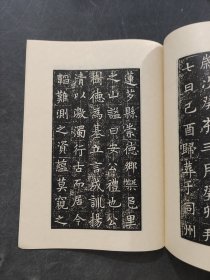 歲次癸亥三月癸卯朔
七日己酉歸葬于同州
蓮芍縣崇德鄉樂邑里
之山謚曰安公禮也公
樹德為基立言成訓揚
清以激濁行古而居今
韜難測之資蘊莫窺之